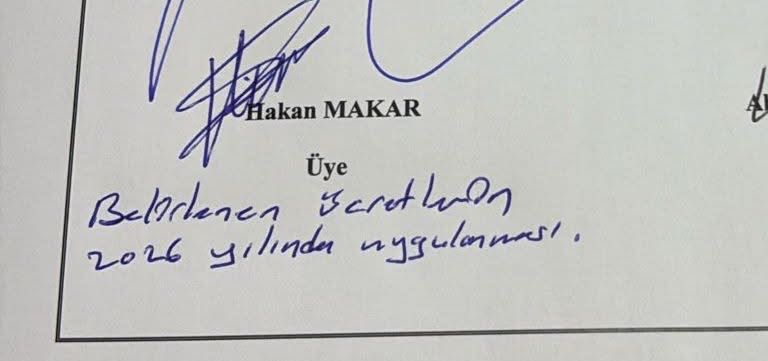 Hakan MAKAR
Üye
Belirlenen ücretlerin
2026 yılında uygulanması.